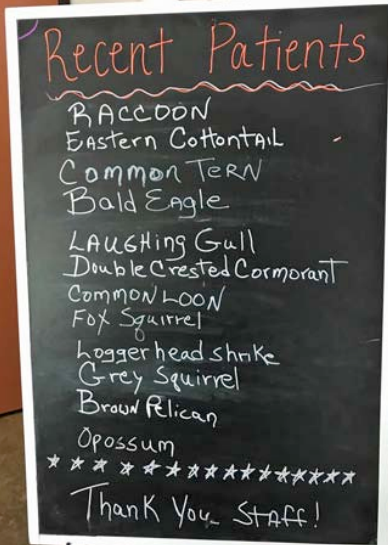 Recent Patients
RACCOON
Eastern CottontAIL
Common TeRN
Bald Eagle
LAUGHing Gull
Double Crested Cormorant
COMMON LOON
FOX Squirrel
Loggerhead shrike
Grey Squirrel
Brown Pelican
Opossum
* * * * * * * * * * * * * * * * * *
Thank You STAFF!